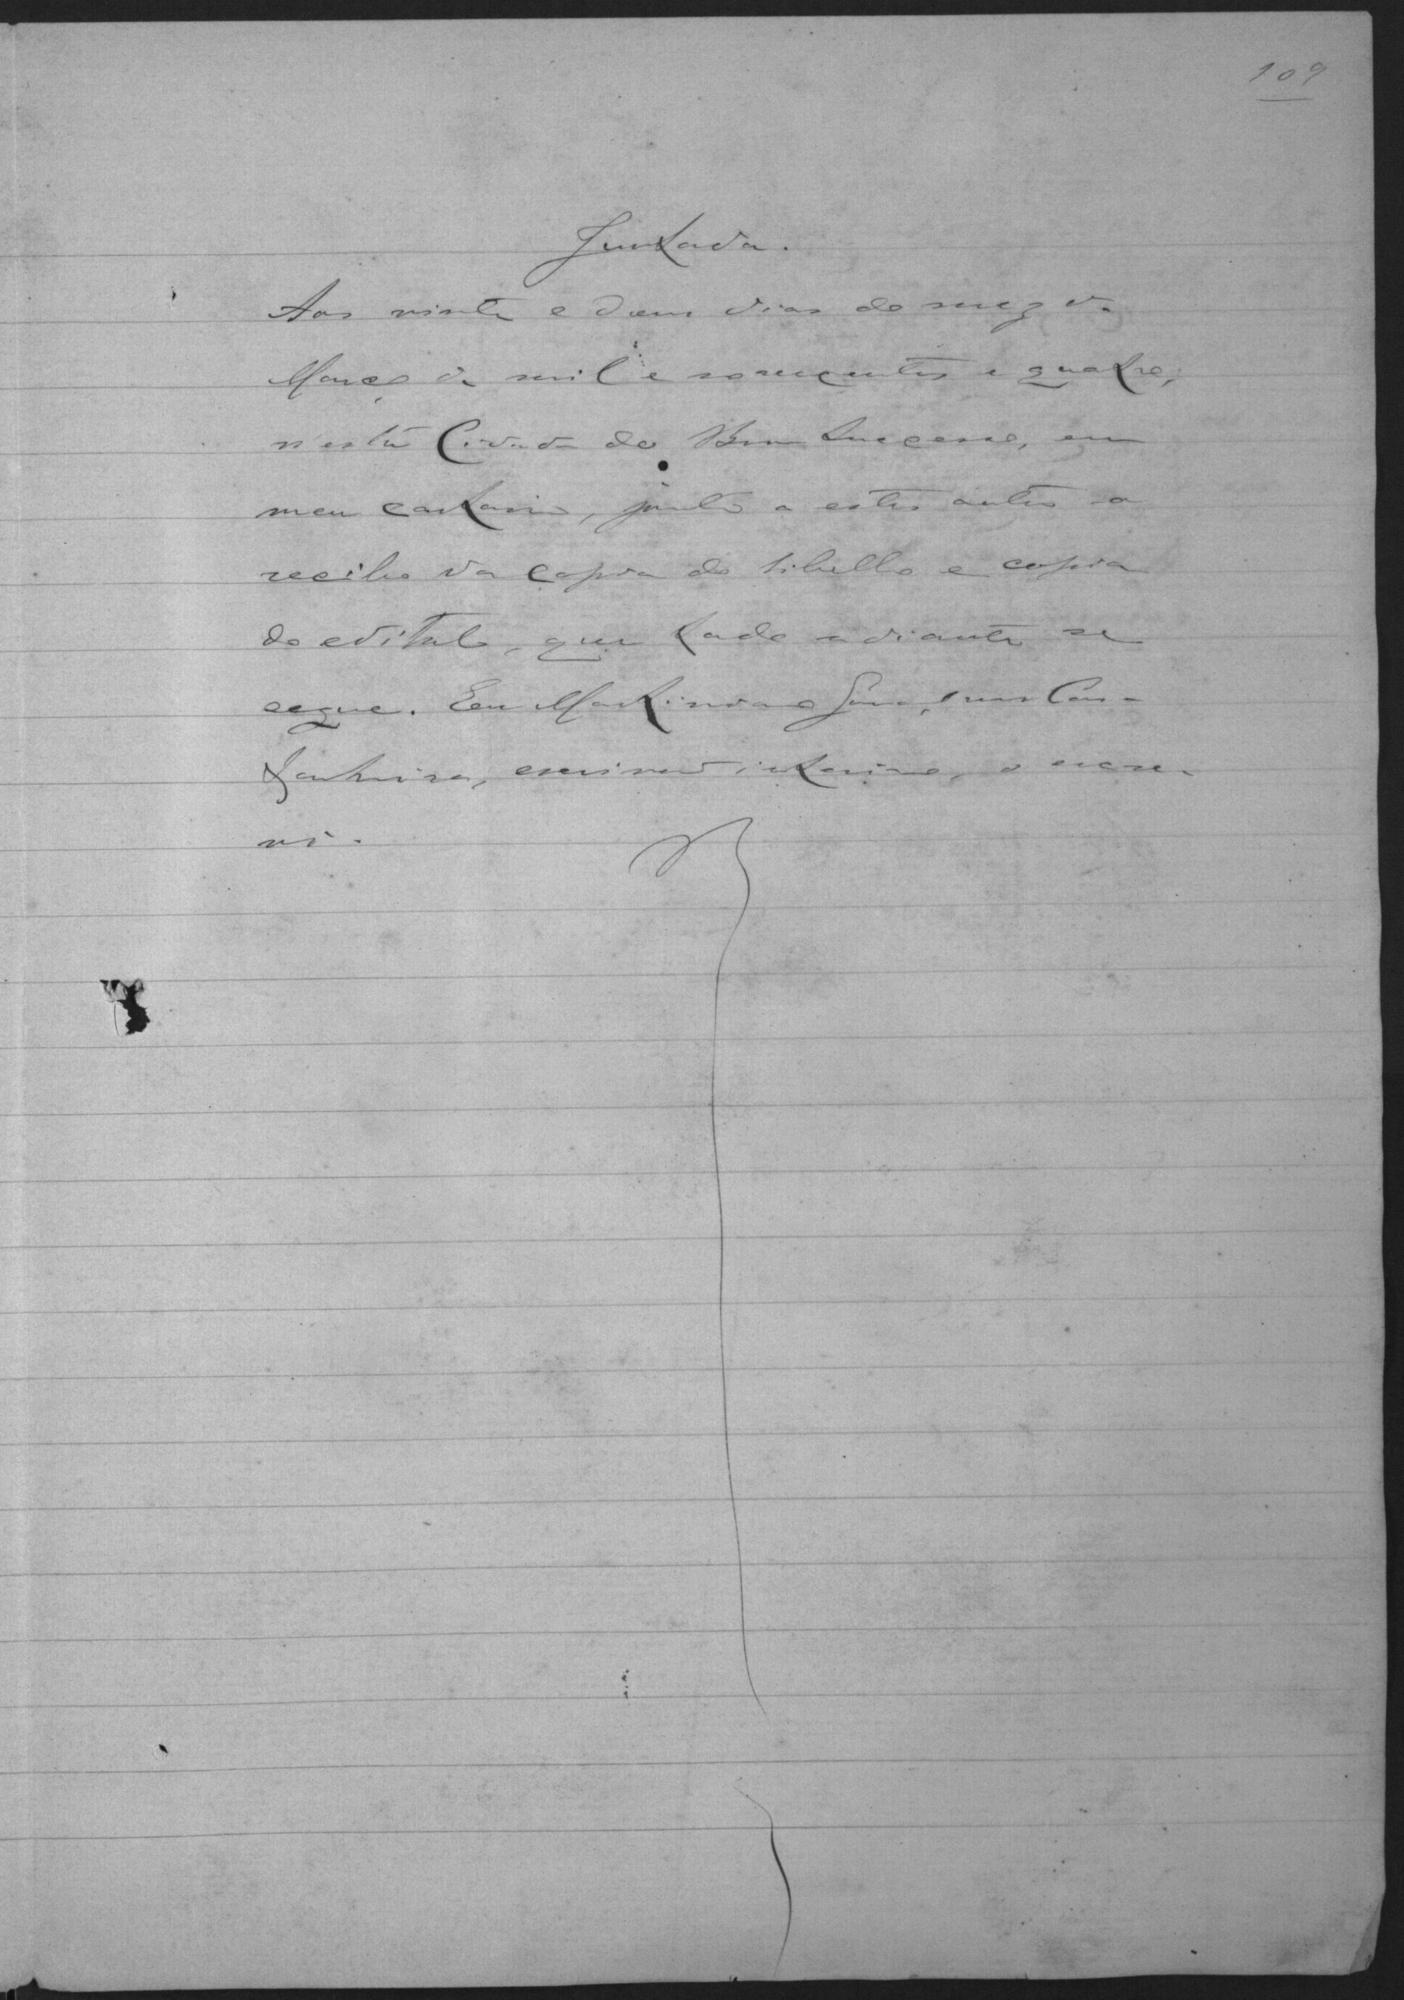 109
Juntada.
Aos vinte e dous dias do mez de
Março de mil e novecentos e quatro,
n'esta Cidade do Bom Successo, em
meu cartorio, junto a estes autos o
recibo da copia do libello e copia
do edital, que tudo adiante se
segue. Eu Martiniano
escrivão interino, o escre-
vi.